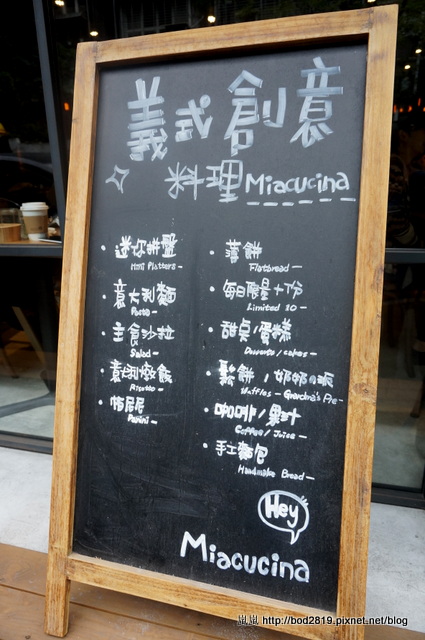 義式創意
料理Miacucina
迷你拼盤
Mini Platters
意大利麵
Pasta
主食沙拉
Salad
意式燉飯
Risotto
帕尼尼
Panini
薄餅
Flatbread
每日限量十份
Limited 10
甜桌/蛋糕
Desserts/cakes
鬆餅/奶奶の派
Waffles - Grandma's Pie
咖啡/果汁
Coffee/Juice
手工麵包
Handmake Bread
Hey
Miacucina
嵐嵐 http://bod2819.pixnet.net/blog